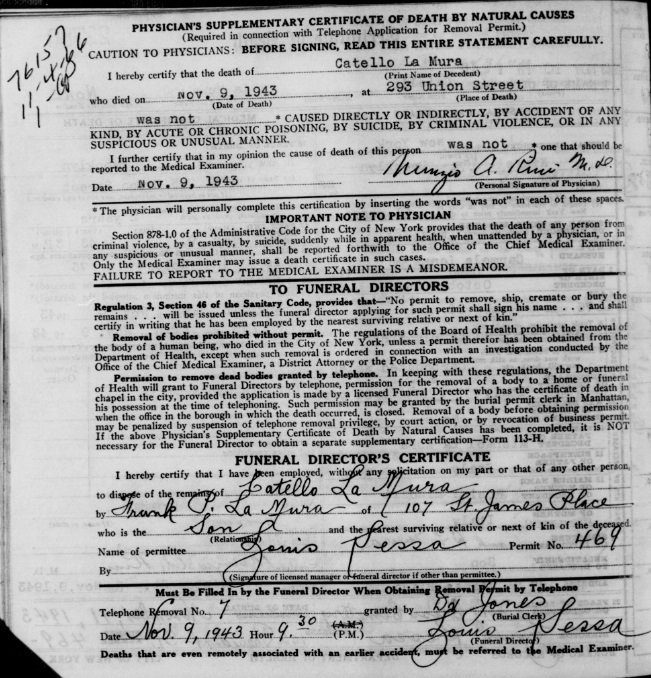 PHYSICIAN'S SUPPLEMENTARY CERTIFICATE OF DEATH BY NATURAL CAUSES
(Required in connection with Telephone Application for Removal Permit.)
CAUTION TO PHYSICIANS: BEFORE SIGNING, READ THIS ENTIRE STATEMENT CAREFULLY.
I hereby certify that the death of Catello La Mura
(Print Name of Decedent)
who died on Nov. 9, 1943, at 293 Union Street
(Date of Death) (Place of Death)
was not * CAUSED DIRECTLY OR INDIRECTLY, BY ACCIDENT OF ANY
KIND, BY ACUTE OR CHRONIC POISONING, BY SUICIDE, BY CRIMINAL VIOLENCE, OR IN ANY
SUSPICIOUS OR UNUSUAL MANNER.
I further certify that in my opinion the cause of death of this person was not * one that should be
reported to the Medical Examiner.
Nunzio A. M.D.
Date Nov. 9, 1943 (Personal Signature of Physician)
* The physician will personally complete this certification by inserting the words "was not" in each of these spaces.
IMPORTANT NOTE TO PHYSICIAN
Section 878-1.0 of the Administrative Code for the City of New York provides that the death of any person from
criminal violence, by a casualty, by suicide, suddenly while in apparent health, when unattended by a physician, or in
any suspicious or unusual manner, shall be reported forthwith to the Office of the Chief Medical Examiner.
Only the Medical Examiner may issue a death certificate in such cases.
FAILURE TO REPORT TO THE MEDICAL EXAMINER IS A MISDEMEANOR.
TO FUNERAL DIRECTORS
Regulation 3, Section 46 of the Sanitary Code, provides that—"No permit to remove, ship, cremate or bury the
remains . . . . will be issued unless the funeral director applying for such permit shall sign his name . . . and shall
certify in writing that he has been employed by the nearest surviving relative or next of kin."
Removal of bodies prohibited without permit. The regulations of the Board of Health prohibit the removal of
the body of a human being, who died in the City of New York, unless a permit therefor has been obtained from the
Department of Health, except when such removal is ordered in connection with an investigation conducted by the
Office of the Chief Medical Examiner, a District Attorney or the Police Department.
Permission to remove dead bodies granted by telephone. In keeping with these regulations, the Department
of Health will grant to Funeral Directors by telephone, permission for the removal of a body to a home or funeral
chapel in the city, provided the application is made by a licensed Funeral Director who has the certificate of death in
his possession at the time of telephoning. Such permission may be granted by the burial permit clerk in Manhattan,
when the office in the borough in which the death occurred, is closed. Removal of a body before obtaining permission
may be penalized by suspension of telephone removal privilege, by court action, or by revocation of business permit.
If the above Physician's Supplementary Certificate of Death by Natural Causes has been completed, it is NOT
necessary for the Funeral Director to obtain a separate supplementary certification—Form 113-H.
FUNERAL DIRECTOR'S CERTIFICATE
I hereby certify that I have been employed, without any solicitation on my part or that of any other person,
to dispose of the remains of Catello La Mura
by Frank P. La Mura of 107 St. James Place
who is the Son and the nearest surviving relative or next of kin of the deceased.
(Relationship)
Name of permittee Louis Sessa Permit No. 469
By
(Signature of licensed manager or funeral director if other than permittee.)
Must Be Filled In by the Funeral Director When Obtaining Removal Permit by Telephone
Telephone Removal No. 7 granted by Jones
(Burial Clerk)
Date Nov. 9, 1943 Hour 9.30 (A.M.) (P.M.) Louis Sessa
(Funeral Director)
Deaths that are even remotely associated with an earlier accident, must be referred to the Medical Examiner.